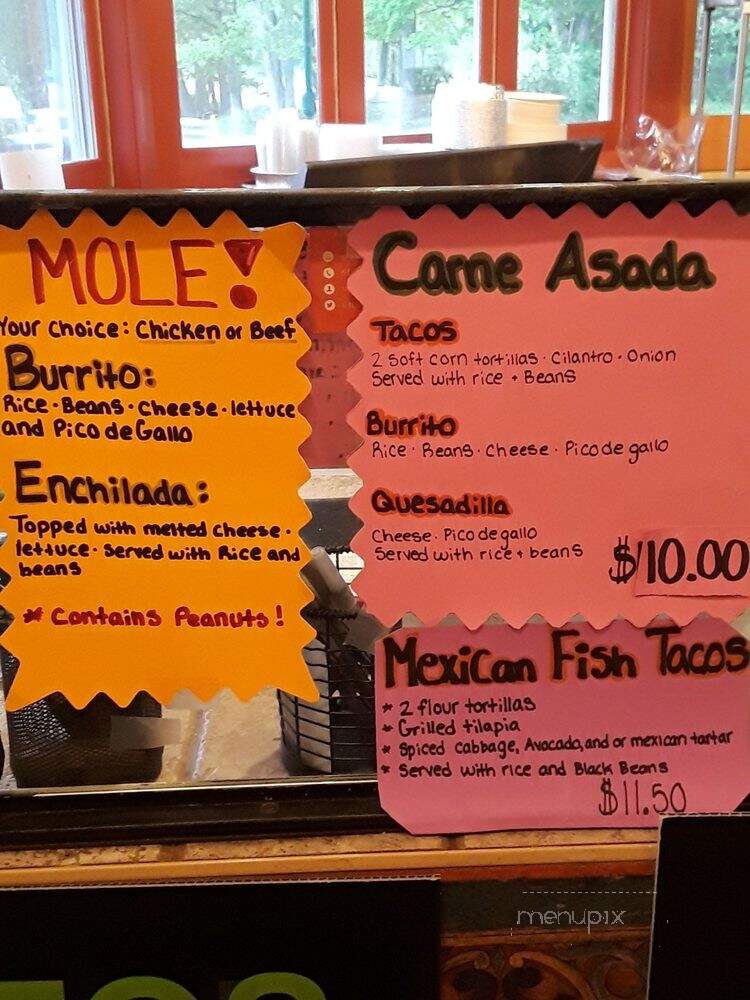 MOLE!
Your choice: Chicken or Beef
Burrito:
Rice · Beans · cheese · lettuce
and Pico de Gallo
Enchilada:
Topped with melted cheese ·
lettuce · served with Rice and
beans
* Contains Peanuts!
Carne Asada
Tacos
2 soft corn tortillas · Cilantro · Onion
Served with rice + Beans
Burrito
Rice · Beans · Cheese · Pico de gallo
Quesadilla
Cheese · Pico de gallo
Served with rice + beans
$10.00
Mexican Fish Tacos
* 2 flour tortillas
* Grilled tilapia
* Spiced cabbage, Avocado, and or mexican tartar
* Served with rice and Black Beans
$11.50
menupix